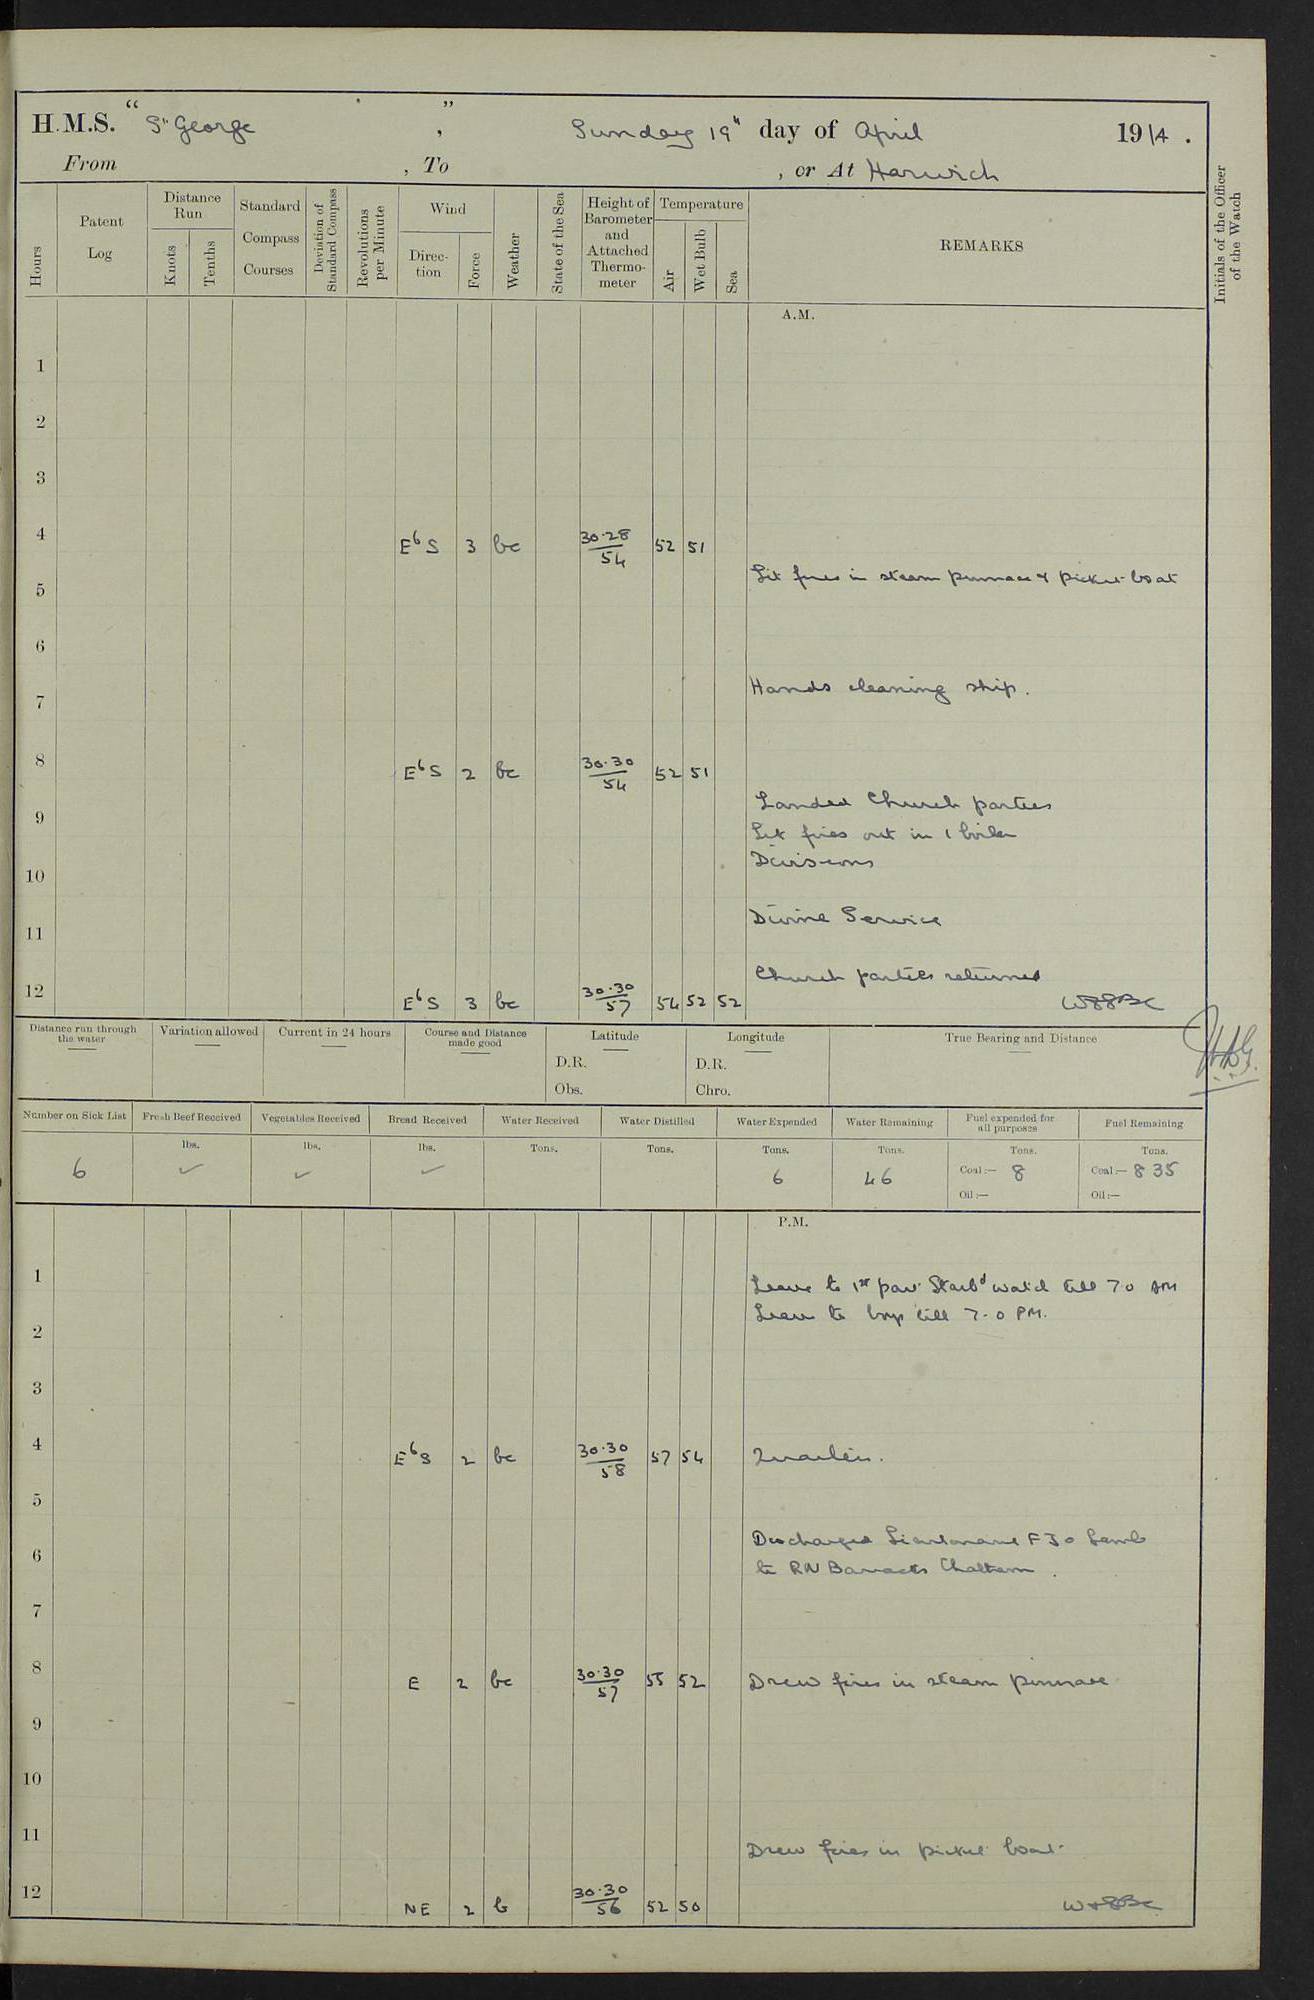 H.M.S. "St George", Sunday 19th day of April 1914.
From , To , or At Harwich
Hours
Patent Log
Distance Run
Knots
Tenths
Standard Compass Courses
Deviation of Standard Compass
Revolutions per Minute
Wind
Direction
Force
Weather
State of the Sea
Height of Barometer and Attached Thermometer
Temperature
Air
Wet Bulb
Sea
REMARKS
Initials of the Officer of the Watch
A.M.
1
2
3
4 EbS 3 bc 30.28/54 52 51
Lit fires in steam pinnace & picket boat
5
6
Hands cleaning ship.
7
8 EbS 2 bc 30.30/54 52 51
Landed Church parties
9
Let fires out in 1 boiler
Divisions
10
Divine Service
11
Church parties returned
12 EbS 3 bc 30.30/57 54 52 52
Distance run through the water
Variation allowed
Current in 24 hours
Course and Distance made good
Latitude
D.R.
Obs.
Longitude
D.R.
Chro.
True Bearing and Distance
Number on Sick List
Fresh Beef Received
Vegetables Received
Bread Received
Water Received
Water Distilled
Water Expended
Water Remaining
Fuel expended for all purposes
Fuel Remaining
lbs. lbs. lbs. Tons. Tons. Tons. Tons. Tons. Tons.
6 ✓ ✓ ✓ 6 46 Coal:— 8 Coal:— 835
Oil:— Oil:—
P.M.
1
Leave to 1st part Starbd watch till 7 0 AM
Leave to boys till 7-0 PM.
2
3
4 EbS 2 bc 30.30/58 57 54 Quarters.
5
Discharged Lieutenant F J O Lamb
6
to RN Barracks Chatham.
7
8 E 2 bc 30.30/57 55 52 Drew fires in steam pinnace
9
10
11
Drew fires in picket boat
12 NE 2 b 30.30/56 52 50